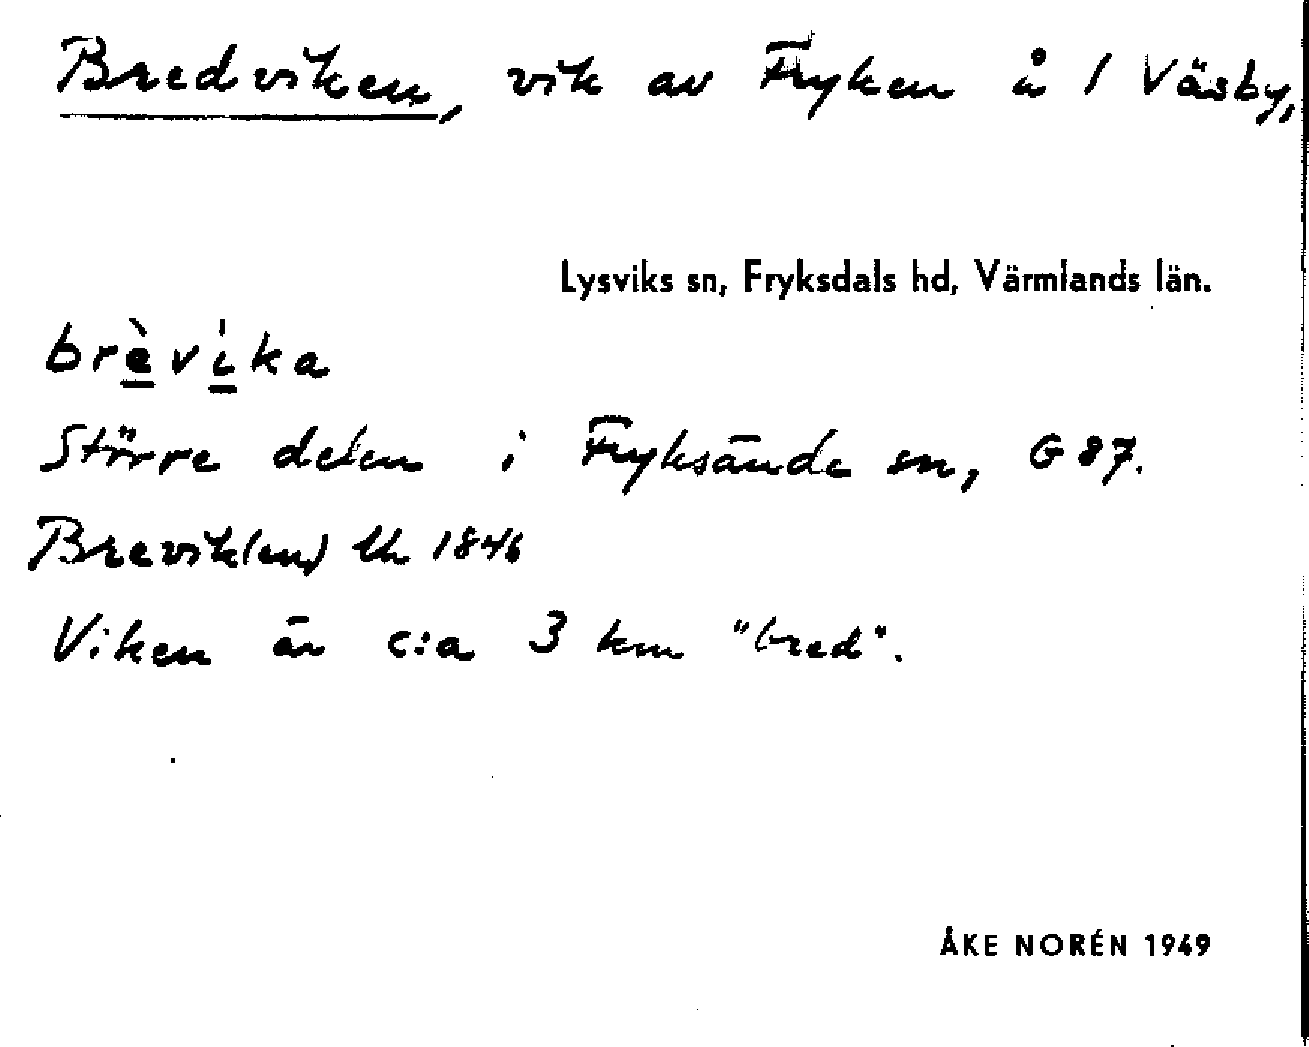 Bredviken, vik av Fryken å 1 Väsby,
Lysviks sn, Fryksdals hd, Värmlands län.
brèvi̍ka
Större delen i Fryksände sn, G 87.
Brevik(en) lk 1846
Viken är c:a 3 km "bred".
ÅKE NORÉN 1949